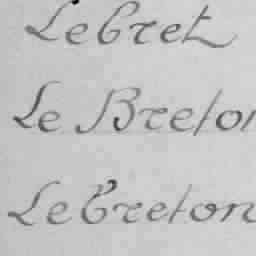 Lebret
Le Breton
Lebreton